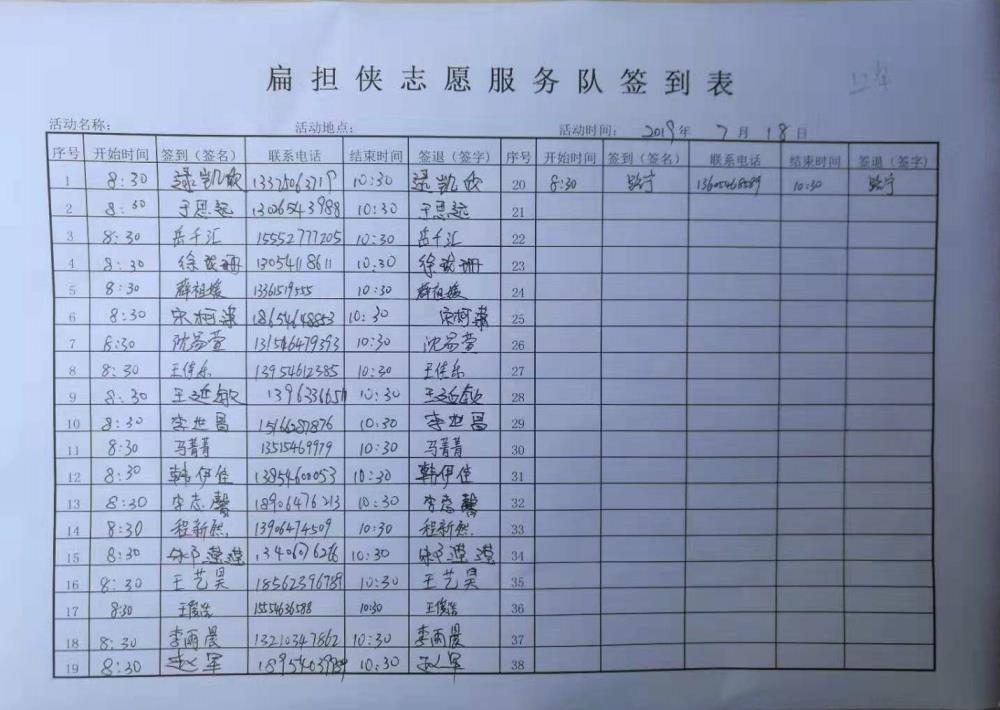 扁担侠志愿服务队签到表
活动名称： 活动地点： 活动时间： 2019年 7月 18日
序号 开始时间 签到（签名） 联系电话 结束时间 签退（签字） 序号 开始时间 签到（签名） 联系电话 结束时间 签退（签字）
1 8:30 逯凯欣 10:30 逯凯欣 20 8:30 10:30
2 8:30 于思远 13026543988 10:30 于思远 21
3 8:30 岳千汇 15552777205 10:30 岳千汇 22
4 8:30 13054118611 10:30 23
5 8:30 薛祖媛 1336519555 10:30 薛祖媛 24
6 8:30 宋柯 18654648853 10:30 宋柯 25
7 8:30 沈易萱 13154647939 10:30 沈易萱 26
8 8:30 王佳乐 13954612385 10:30 王佳乐 27
9 8:30 王延敏 10:30 王延敏 28
10 8:30 李世昌 15166287876 10:30 李世昌 29
11 8:30 马菁菁 13515469979 10:30 马菁菁 30
12 8:30 韩伊佳 13854600053 10:30 韩伊佳 31
13 8:30 李志馨 18906476213 10:30 李志馨 32
14 8:30 程新然 13906474509 10:30 程新然 33
15 8:30 10:30 34
16 8:30 王艺昊 18562396789 10:30 王艺昊 35
17 8:30 王俊浩 15554636588 10:30 王俊浩 36
18 8:30 李雨晨 13210347862 10:30 李雨晨 37
19 8:30 赵军 10:30 赵军 38